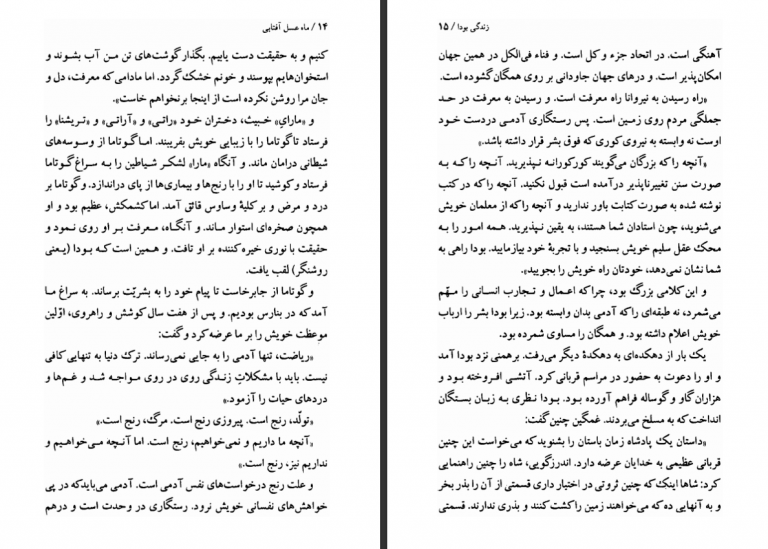 ۱۴ / ماه عسل آفتابی
کنیم و به حقیقت دست یابیم. بگذار گوشت‌های تن من آب بشوند و
استخوان‌هایم بپوسند و خونم خشک گردد. اما مادامی که معرفت، دل و
جان مرا روشن نکرده است از اینجا برنخواهم خاست».
و «مارای» خبیث، دختران خود «راتی» و «آراتی» و «تریشنا» را
فرستاد تا گوتاما را با زیبایی خویش بفریبند. اما گوتاما از وسوسه‌های
شیطانی درامان ماند. و آنگاه «مارا» لشکر شیاطین را به سراغ گوتاما
فرستاد و کوشید تا او را با رنج‌ها و بیماری‌ها از پای دراندازد. و گوتاما بر
درد و مرض و بر کلیهٔ وساوس فائق آمد. اما کشمکش، عظیم بود و او
همچون صخره‌ای استوار ماند. و آنگاه، معرفت بر او روی نمود و
حقیقت با نوری خیره‌کننده بر او تافت. و همین است که بودا (یعنی
روشنگر) لقب یافت.
و گوتاما از جابرخاست تا پیام خود را به بشریّت برساند. به سراغ ما
آمد که در بنارس بودیم. و پس از هفت سال کوشش و راهروی، اوّلین
موعظت خویش را بر ما عرضه کرد و گفت:
«ریاضت، تنها آدمی را به جایی نمی‌رساند. ترک دنیا به تنهایی کافی
نیست. باید با مشکلاتِ زندگی روی در روی مواجه شد و غم‌ها و
دردهای حیات را آزمود.»
«تولّد، رنج است. پیروزی رنج است. مرگ، رنج است.»
«آنچه ما داریم و نمی‌خواهیم، رنج است. اما آنچه می‌خواهیم و
نداریم نیز، رنج است.»
و علت رنج درخواست‌های نفس آدمی است. آدمی می‌باید که در پی
خواهش‌های نفسانی خویش نرود. رستگاری در وحدت است و درهم
زندگی بودا / ۱۵
آهنگی است. در اتحاد جزء و کل است. و فناء فی‌الکل در همین جهان
امکان‌پذیر است. و درهای جهان جاودانی بر روی همگان گشوده است.
«راه رسیدن به نیروانا راه معرفت است. و رسیدن به معرفت در حد
جملگی مردم روی زمین است. پس رستگاری آدمی دردست خود
اوست نه وابسته به نیروی کوری که فوق بشر قرار داشته باشد.»
«آنچه را که بزرگان می‌گویند کورکورانه نپذیرید. آنچه را که به
صورت سنن تغییرناپذیر درآمده است قبول نکنید. آنچه را که در کتب
نوشته شده به صورت کتابت باور ندارید و آنچه را که از معلمان خویش
می‌شنوید، چون استادان شما هستند، به یقین نپذیرید. همه امور را به
محک عقل سلیم خویش بسنجید و با تجربهٔ خود بیازمایید. بودا راهی به
شما نشان نمی‌دهد، خودتان راه خویش را بجویید».
و این کلامی بزرگ بود، چرا که اعمال و تجارب انسانی را مهّم
می‌شمرد، نه طبقه‌ای را که آدمی بدان وابسته بود. زیرا بودا بشر را ارباب
خویش اعلام داشته بود. و همگان را مساوی شمرده بود.
یک بار از دهکده‌ای به دهکدهٔ دیگر می‌رفت. برهمنی نزد بودا آمد
و او را دعوت به حضور در مراسم قربانی کرد. آتشی افروخته بود و
هزاران گاو و گوساله فراهم آورده بود. بودا نظری به زبان بستگان
انداخت که به مسلخ می‌بردند. غمگین چنین گفت:
«داستان یک پادشاه زمان باستان را بشنوید که می‌خواست این چنین
قربانی عظیمی به خدایان عرضه دارد. اندرزگویی، شاه را چنین راهنمایی
کرد: شاها اینک که چنین ثروتی در اختیار داری قسمتی از آن را بذر بخر
و به آنهایی ده که می‌خواهند زمین را کشت کنند و بذری ندارند. قسمتی